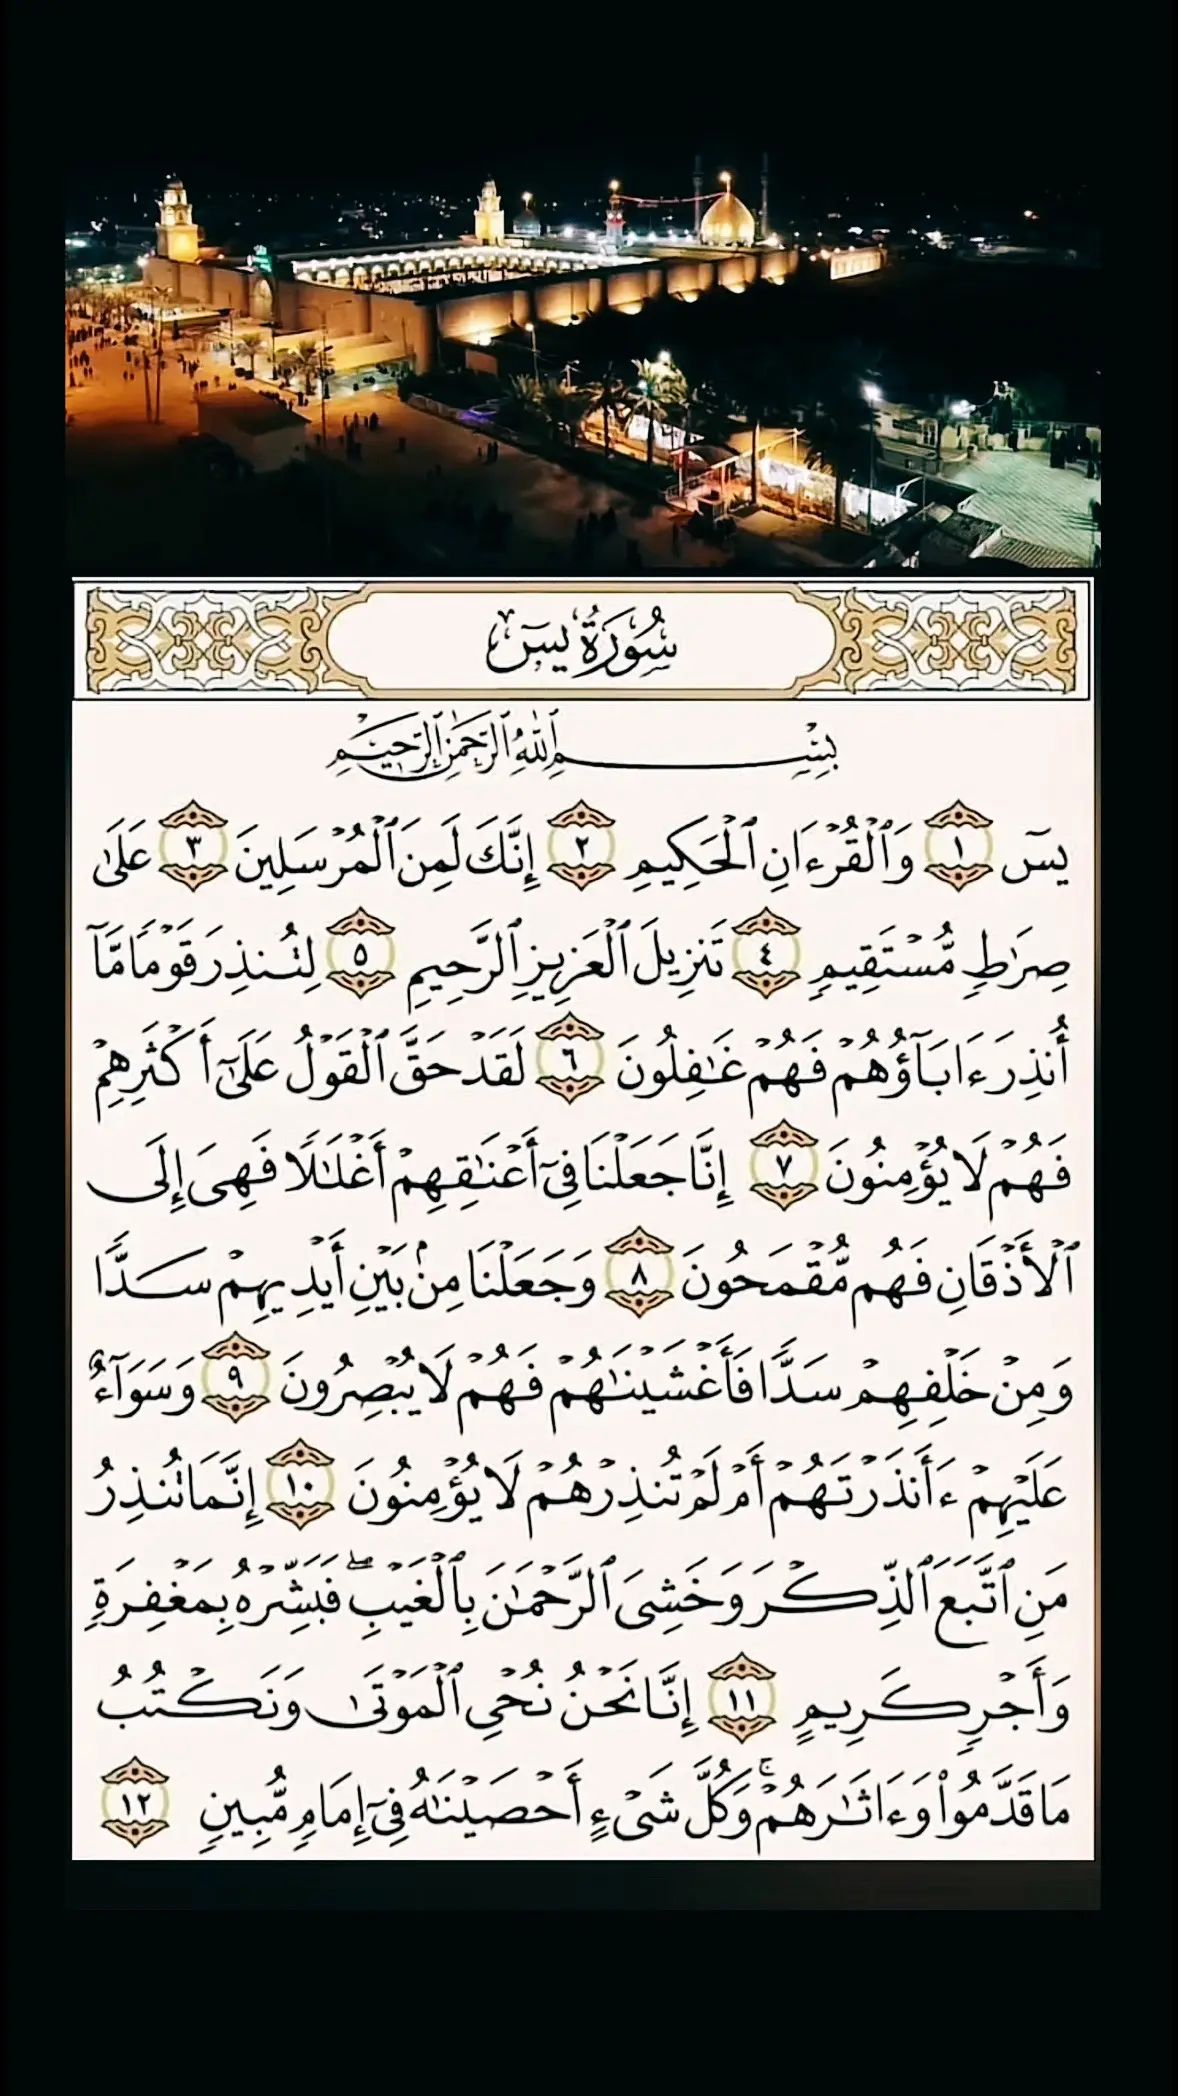 سُورَةُ يسٓ
بِسۡمِ ٱللَّهِ ٱلرَّحۡمَٰنِ ٱلرَّحِيمِ
يسٓ ١ وَٱلۡقُرۡءَانِ ٱلۡحَكِيمِ ٢ إِنَّكَ لَمِنَ ٱلۡمُرۡسَلِينَ ٣ عَلَىٰ
صِرَٰطٖ مُّسۡتَقِيمٖ ٤ تَنزِيلَ ٱلۡعَزِيزِ ٱلرَّحِيمِ ٥ لِتُنذِرَ قَوۡمٗا مَّآ
أُنذِرَ ءَابَآؤُهُمۡ فَهُمۡ غَٰفِلُونَ ٦ لَقَدۡ حَقَّ ٱلۡقَوۡلُ عَلَىٰٓ أَكۡثَرِهِمۡ
فَهُمۡ لَا يُؤۡمِنُونَ ٧ إِنَّا جَعَلۡنَا فِيٓ أَعۡنَٰقِهِمۡ أَغۡلَٰلٗا فَهِيَ إِلَى
ٱلۡأَذۡقَانِ فَهُم مُّقۡمَحُونَ ٨ وَجَعَلۡنَا مِنۢ بَيۡنِ أَيۡدِيهِمۡ سَدّٗا
وَمِنۡ خَلۡفِهِمۡ سَدّٗا فَأَغۡشَيۡنَٰهُمۡ فَهُمۡ لَا يُبۡصِرُونَ ٩ وَسَوَآءٌ
عَلَيۡهِمۡ ءَأَنذَرۡتَهُمۡ أَمۡ لَمۡ تُنذِرۡهُمۡ لَا يُؤۡمِنُونَ ١٠ إِنَّمَا تُنذِرُ
مَنِ ٱتَّبَعَ ٱلذِّكۡرَ وَخَشِيَ ٱلرَّحۡمَٰنَ بِٱلۡغَيۡبِۖ فَبَشِّرۡهُ بِمَغۡفِرَةٖ
وَأَجۡرٖ كَرِيمٍ ١١ إِنَّا نَحۡنُ نُحۡيِ ٱلۡمَوۡتَىٰ وَنَكۡتُبُ
مَا قَدَّمُواْ وَءَاثَٰرَهُمۡۚ وَكُلَّ شَيۡءٍ أَحۡصَيۡنَٰهُ فِيٓ إِمَامٖ مُّبِينٖ ١٢